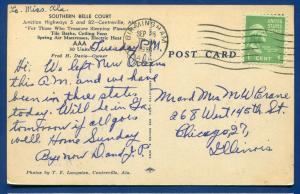 To. Miss. Ala.
SOUTHERN BELLE COURT
Junction Highways 5 and 82—Centreville, Ala.
"For Those Who Treasure Sleeping Pleasure"
Tile Baths, Ceiling Fans
Air Mattresses, Electric Heat
AAA
Fred H. Davis—Owner
BIRMINGHAM
SEP
POST CARD
1 CENT
Tuesday P.M.
Hi. We left New Orleans
this A.M. and we have
been in three states
today. Will be in Ga.
tomorrow if all goes
well. Home Sunday
By now Dan &
Mr and Mrs M W Crane
268 West 145th St
Chicago, 27,
Illinois
Photos by T. F. Langston, Centreville, Ala.